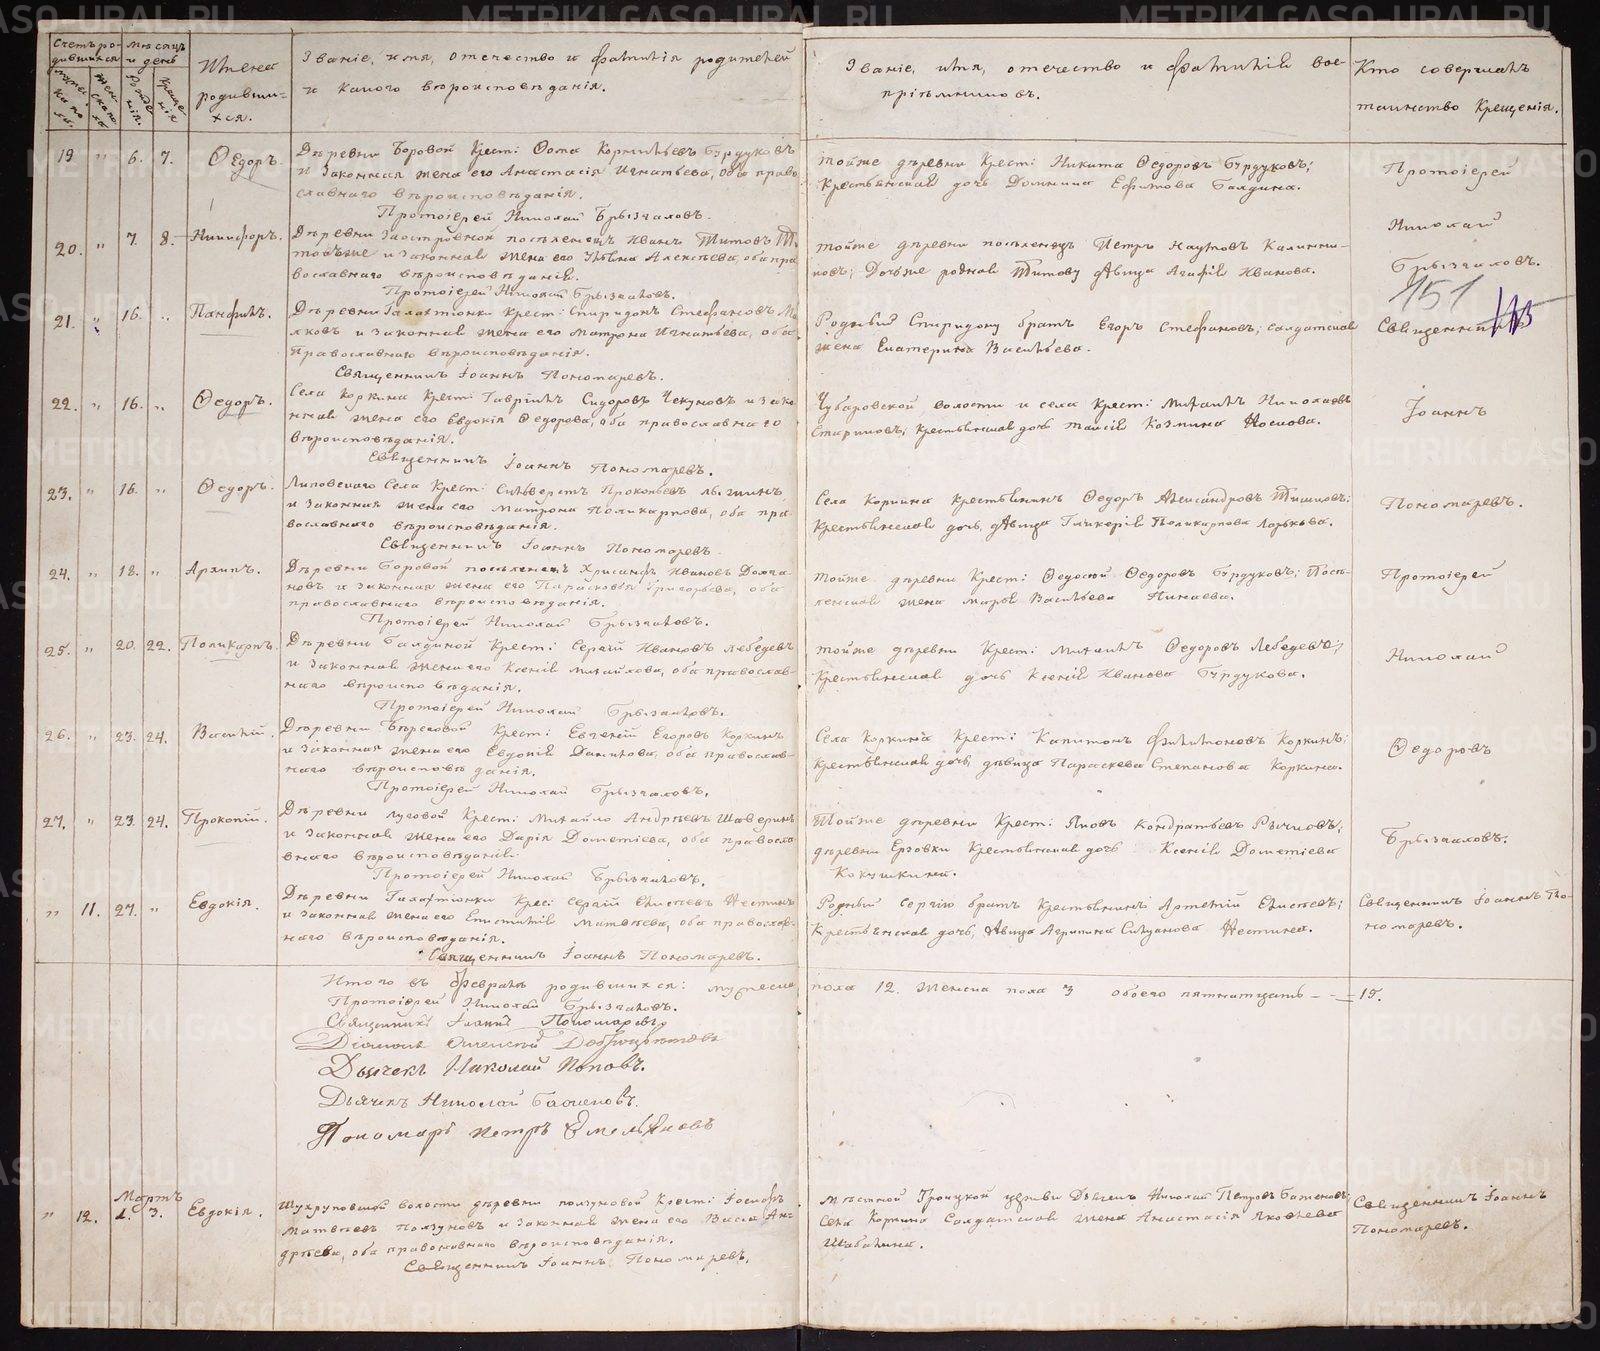 Счетъ ро-
дившихся
Мѣсяцъ
и день
Рожде
нія.
Креще
нія
Имена
родивши=
хся.
Званіе, имя, отечество и фамилія родителей
и какого вѣроисповѣданія.
Званіе, имя, отечество и фамилія вос-
пріемниковъ.
Кто совершалъ
таинство Крещенія.
19 " 6. 7. Ѳедоръ.
Деревни Боровой Крест: Ѳома Корнильевъ Бурдуковъ
и Законная жена его Анастасія Игнатьева, оба право
славнаго вѣроисповѣданія.
Протоіерей Николай Брызгаловъ.
Тойже деревни Крест: Никита Ѳедоровъ Бурдуковъ;
Крестьянская дочь Домника Ефимова Балдина.
Протоіерей
20. " 7. 8. Никифоръ.
Деревни Заостровной поселенецъ Иванъ Титовъ
и законная жена его Ульяна Алексѣева, оба пра
вославнаго вѣроисповѣданія.
Протоіерей Николай Брызгаловъ.
тойже деревни поселенецъ Петръ Наумовъ Калини-
новъ; Дочь же родная Титову дѣвица Агафія Иванова.
Николай
Брызгаловъ.
151
21. " 16. " Панфилъ.
Деревни Галактіонки Крест: Спиридонъ Стефановъ
и Законная жена его Матрона Игнатьева, оба
православнаго вѣроисповѣданія.
Священникъ Іоаннъ Пономаревъ.
Родный Спиридону братъ Егоръ Стефановъ; солдатская
жена Екатерина Васильева.
Священникъ
22. " 16. " Ѳедоръ.
Села Коркина Крест: Гавріилъ Сидоровъ Чекуновъ и зако
нная жена его Евдокія Ѳедорова, оба православнаго
вѣроисповѣданія.
Священникъ Іоаннъ Пономаревъ.
Чубаровской волости и села Крест: Михаилъ Николаевъ
Стариковъ; крестьянская дочь Таисія Козмина Носкова.
Іоаннъ
23. " 16. " Ѳедоръ.
Липовскаго Села Крест: Сильверстъ Прокопьевъ
и Законная жена его Матрона Поликарпова, оба пра
вославнаго вѣроисповѣданія.
Священникъ Іоаннъ Пономаревъ
Села Коркина Крестьянинъ Ѳедоръ Александровъ Тишковъ;
Крестьянская дочь, дѣвица Гликерія Поликарпова Ларькова.
Пономаревъ.
24. " 18. " Архипъ.
Деревни Боровой поселенецъ Хрисанфъ Ивановъ Долга
новъ и законная жена его Парасковья Григорьева, оба
православнаго вѣроисповѣданія.
Протоіерей Николай Брызгаловъ.
тойже деревни Крест: Ѳедосій Ѳедоровъ Бурдуковъ; Посе-
ленская жена Марья Васильева Минаева.
Протоіерей
25. " 20. 22. Поликарпъ.
Деревни Балдиной Крест: Сергій Ивановъ Лебедевъ
и Законная жена его Ксенія Михайлова, оба православ-
наго вѣроисповѣданія.
Протоіерей Николай Брызгаловъ.
тойже деревни Крест: Михаилъ Ѳедоровъ Лебедевъ;
Крестьянская дочь Ксенія Иванова Бурдукова.
Николай
26. " 23. 24. Василій.
Деревни Береговой Крест: Евгеній Егоровъ Коркинъ
и Законная жена его Евдокія Данилова, оба православ-
наго вѣроисповѣданія.
Протоіерей Николай Брызгаловъ.
Села Коркина Крест: Капитонъ Филимоновъ Коркинъ;
Крестьянская дочь, дѣвица Параскева Степанова Коркина.
Ѳедоровъ
27. " 23. 24. Прокопій.
Деревни Луговой Крест: Михайло Андреевъ Шаверинъ
и Законная жена его Дарія Дометіева, оба правосла
внаго вѣроисповѣданія.
Протоіерей Николай Брызгаловъ.
Тойже деревни Крест: Яковъ Кондратьевъ Рычковъ;
деревни Ерзовки Крестьянская дочь Ксенія Дометіева
Кокушкина.
Брызгаловъ.
" 11. 27. " Евдокія.
Деревни Галактіонки Крес: Сергій Елисѣевъ Нестинъ
и Законная жена его Епистимія Матвѣева, оба православ
наго вѣроисповѣданія.
Священникъ Іоаннъ Пономаревъ.
Родный Сергію братъ Крестьянинъ Артемій Елисѣевъ;
Крестьянская дочь, дѣвица Агрипина Силуанова Нестина.
Священникъ Іоаннъ По-
номаревъ.
Итого въ февралѣ родившихся: мужеска
пола 12. Женска пола 3 обоего пятнатцать - - 15.
Протоіерей Николай Брызгаловъ.
Священникъ Іоаннъ Пономаревъ
Діаконъ Алексѣй
Дьячекъ Николай Поповъ.
Дьячекъ Николай Баженовъ.
Пономарь Петръ Емельяновъ
Мартъ
" 12. 1. 3. Евдокія.
волости деревни Ползуновой Крест: Іосифъ
Матвѣевъ Ползуновъ и Законная жена его Васса Ан-
дреева, оба православнаго вѣроисповѣданія.
Священникъ Іоаннъ Пономаревъ.
Мѣстной Троицкой церкви Дьячекъ Николай Петровъ Баженовъ;
Села Коркина Солдатская жена Анастасія Яковлева
Шабалина.
Священникъ Іоаннъ
Пономаревъ.
METRIKI.GASO-URAL.RU